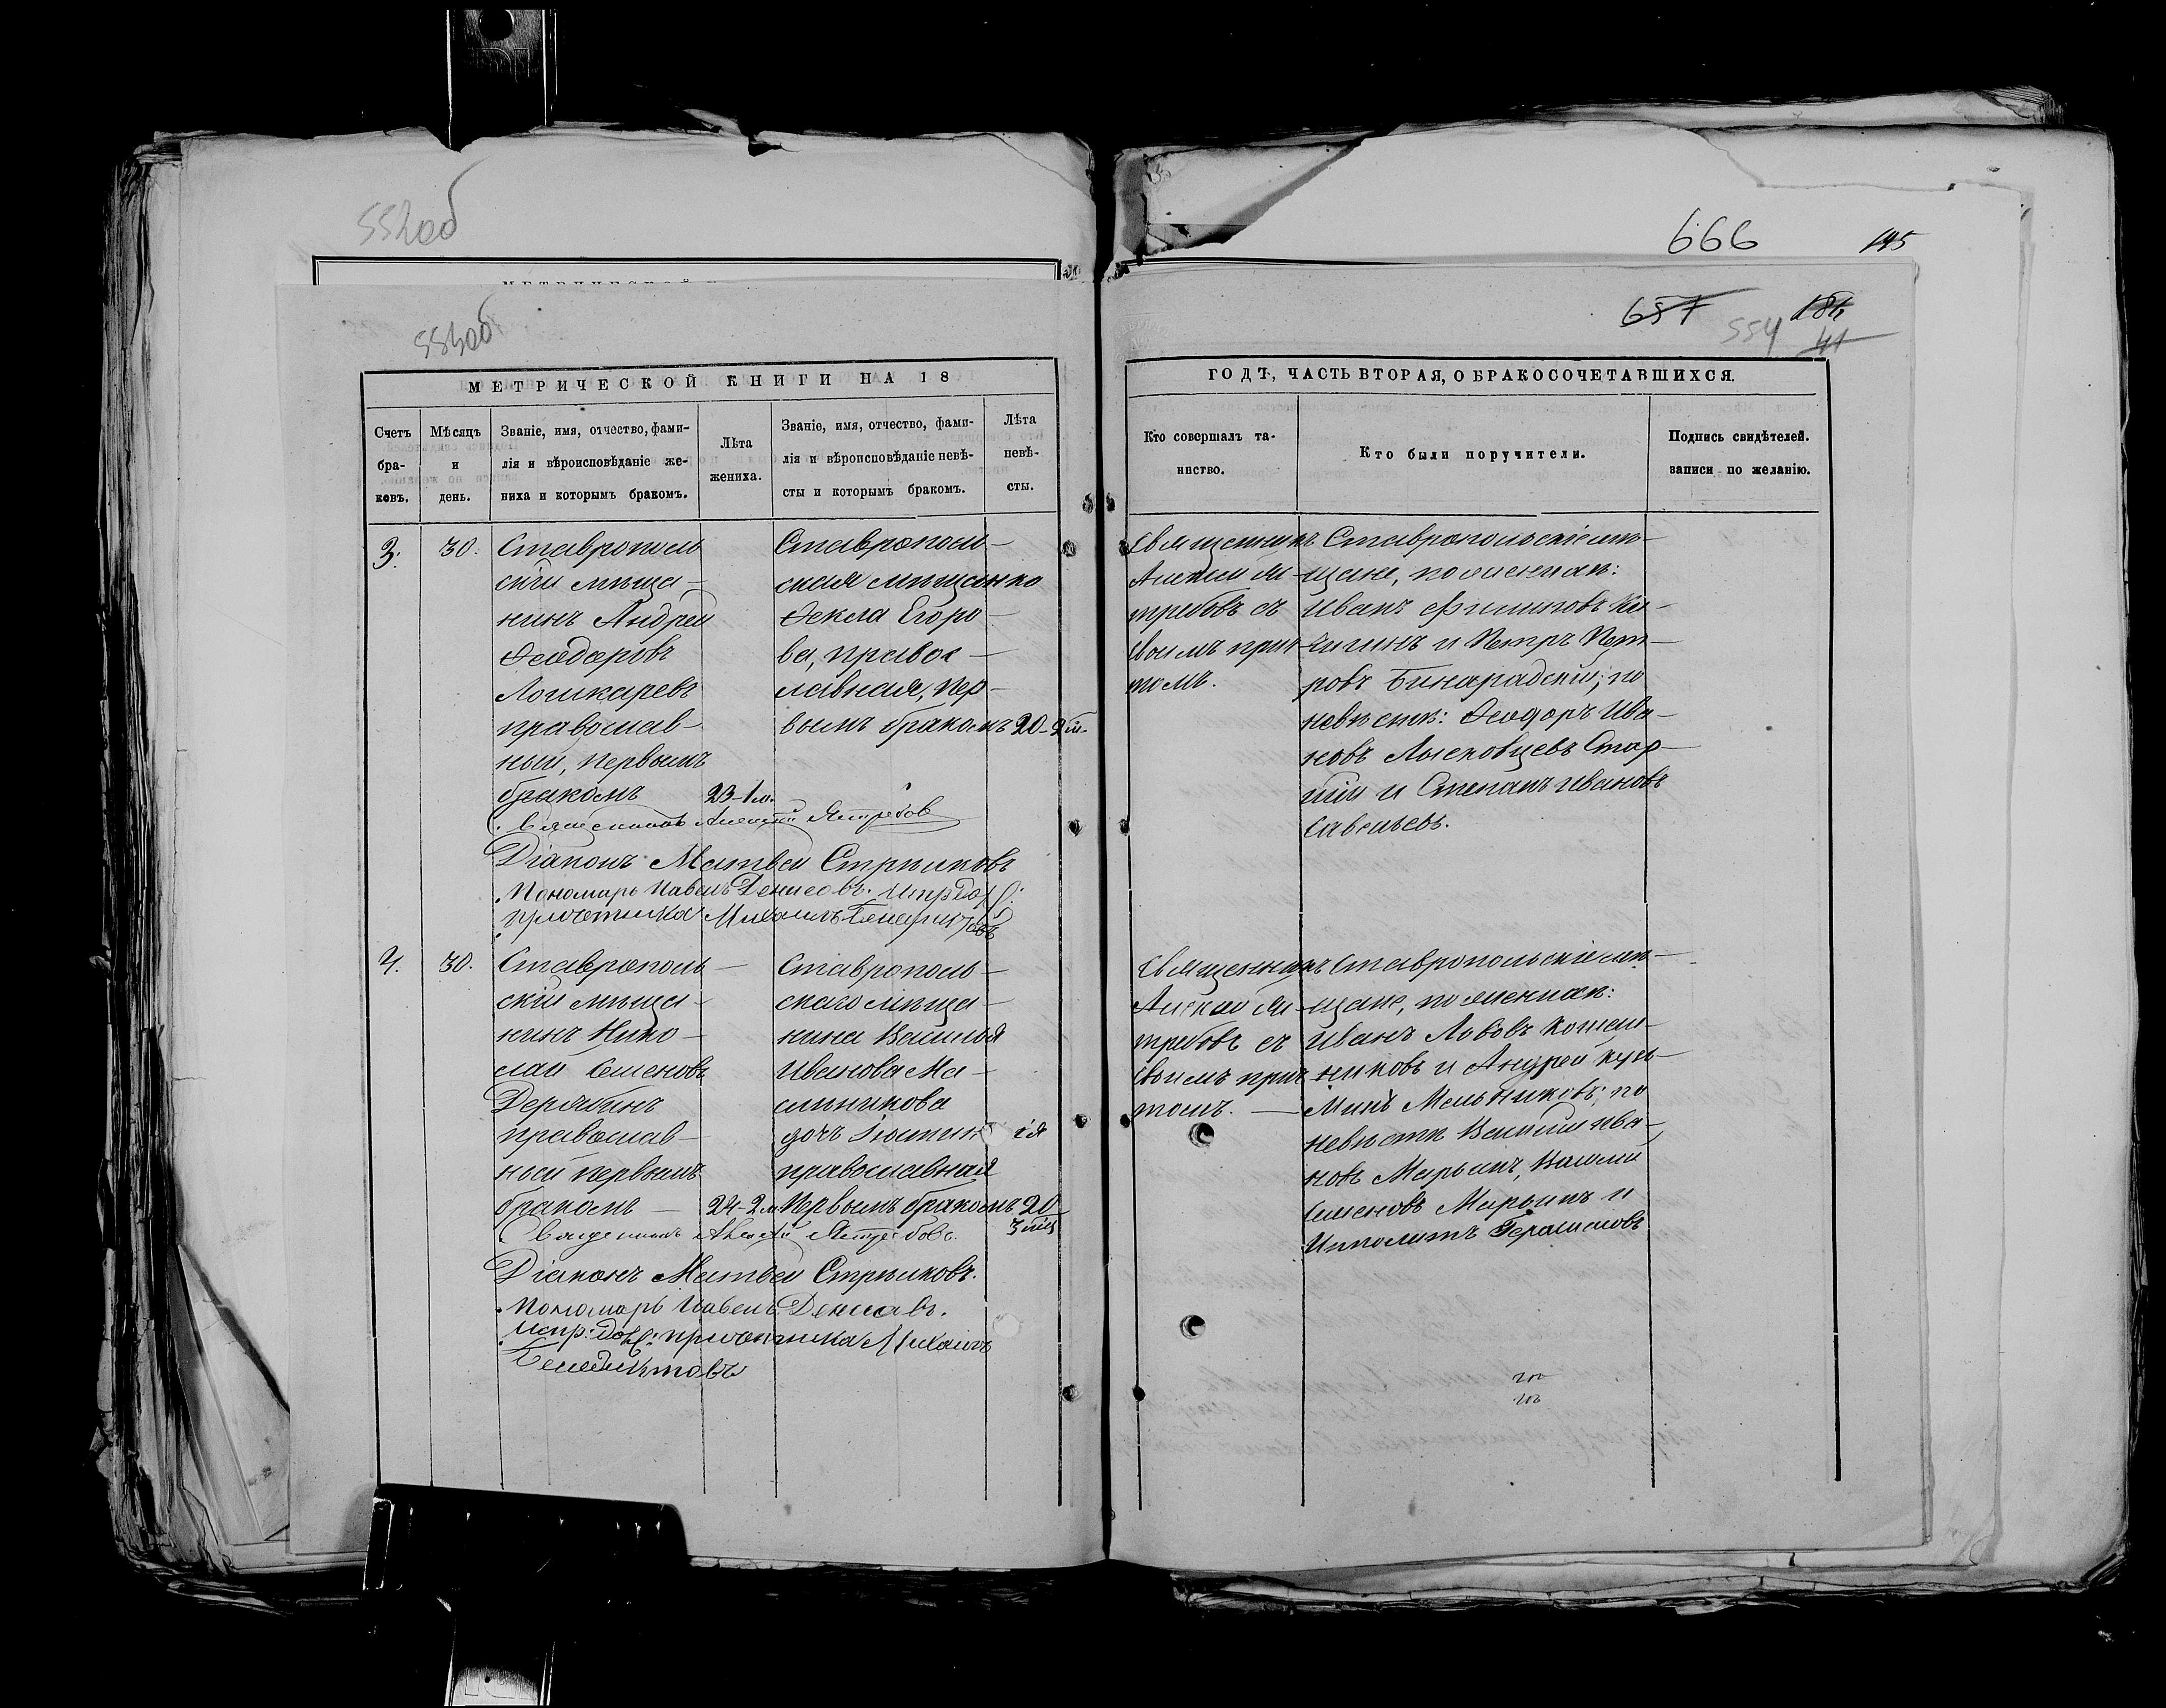 552 об
553 об
МЕТРИЧЕСКОЙ КНИГИ НА 18
Счетъ бра-ковъ.
Мѣсяцъ и день.
Званіе, имя, отчество, фами-
лія и вѣроисповѣданіе же-
ниха и которымъ бракомъ.
Лѣта жениха.
Званіе, имя, отчество, фами-
лія и вѣроисповѣданіе невѣ-
сты и которымъ бракомъ.
Лѣта невѣ-сты.
3.
30.
Ставрополь
скій мѣща-
нинъ Андрей
Ѳеодоровъ
Лошкаревъ
православ-
ный, первымъ
бракомъ
23-1 м.
Ставрополь-
ская мѣщанка
Ѳекла Егоро-
ва, правос-
лавная, пер-
вымъ бракомъ
20-2 м.
Священникъ Алексѣй Ястребовъ
Діаконъ Матвей Стрѣлковъ
Пономарь Павелъ Денисовъ. Испр: дол:
причетника Михаилъ
4.
30.
Ставрополь-
скій мѣща-
нинъ Нико-
лай Семеновъ
Дерябинъ
православ-
ной первымъ
бракомъ
24-2 м
Ставрополь-
скаго мѣща-
нина Василья
Иванова Ма-
слникова
дочь
православная
первымъ бракомъ
20
3 мѣс
Священникъ Алексѣй Ястребовъ.
Діаконъ Матвей Стрѣлковъ.
Пономарь Павелъ Денисовъ.
Испр: дол: причетника Михаилъ
Бенедиктовъ
666
195
657
554
181
41
ГОДЪ, ЧАСТЬ ВТОРАЯ, О БРАКОСОЧЕТАВШИХСЯ.
Кто совершалъ та-
инство.
Кто были поручители.
Подпись свидѣтелей.
записи по желанію.
Священникъ
Алексѣй Яс-
требовъ съ
своимъ прич-
томъ.
Ставропольскіе мѣ-
щане, по женихѣ:
Иванъ Филиповъ Ки-
чигинъ и Петръ Пет-
ровъ Бинарадскій; по
невѣстѣ: Ѳеодоръ Ива-
новъ Лысковцевъ Стар-
шій и Степанъ Ивановъ
Савельевъ.
Священникъ
Алексѣй Яс-
требовъ съ
своимъ прич-
томъ.
Ставропольскіе мѣ-
щане, по женихѣ:
Иванъ Львовъ Котель-
никовъ и Андрей Кузь-
минъ Мельниковъ; по
невѣстѣ Василій Ива-
новъ Марьинъ, Василій
Семеновъ Марьинъ и
Иполитъ Герасимовъ